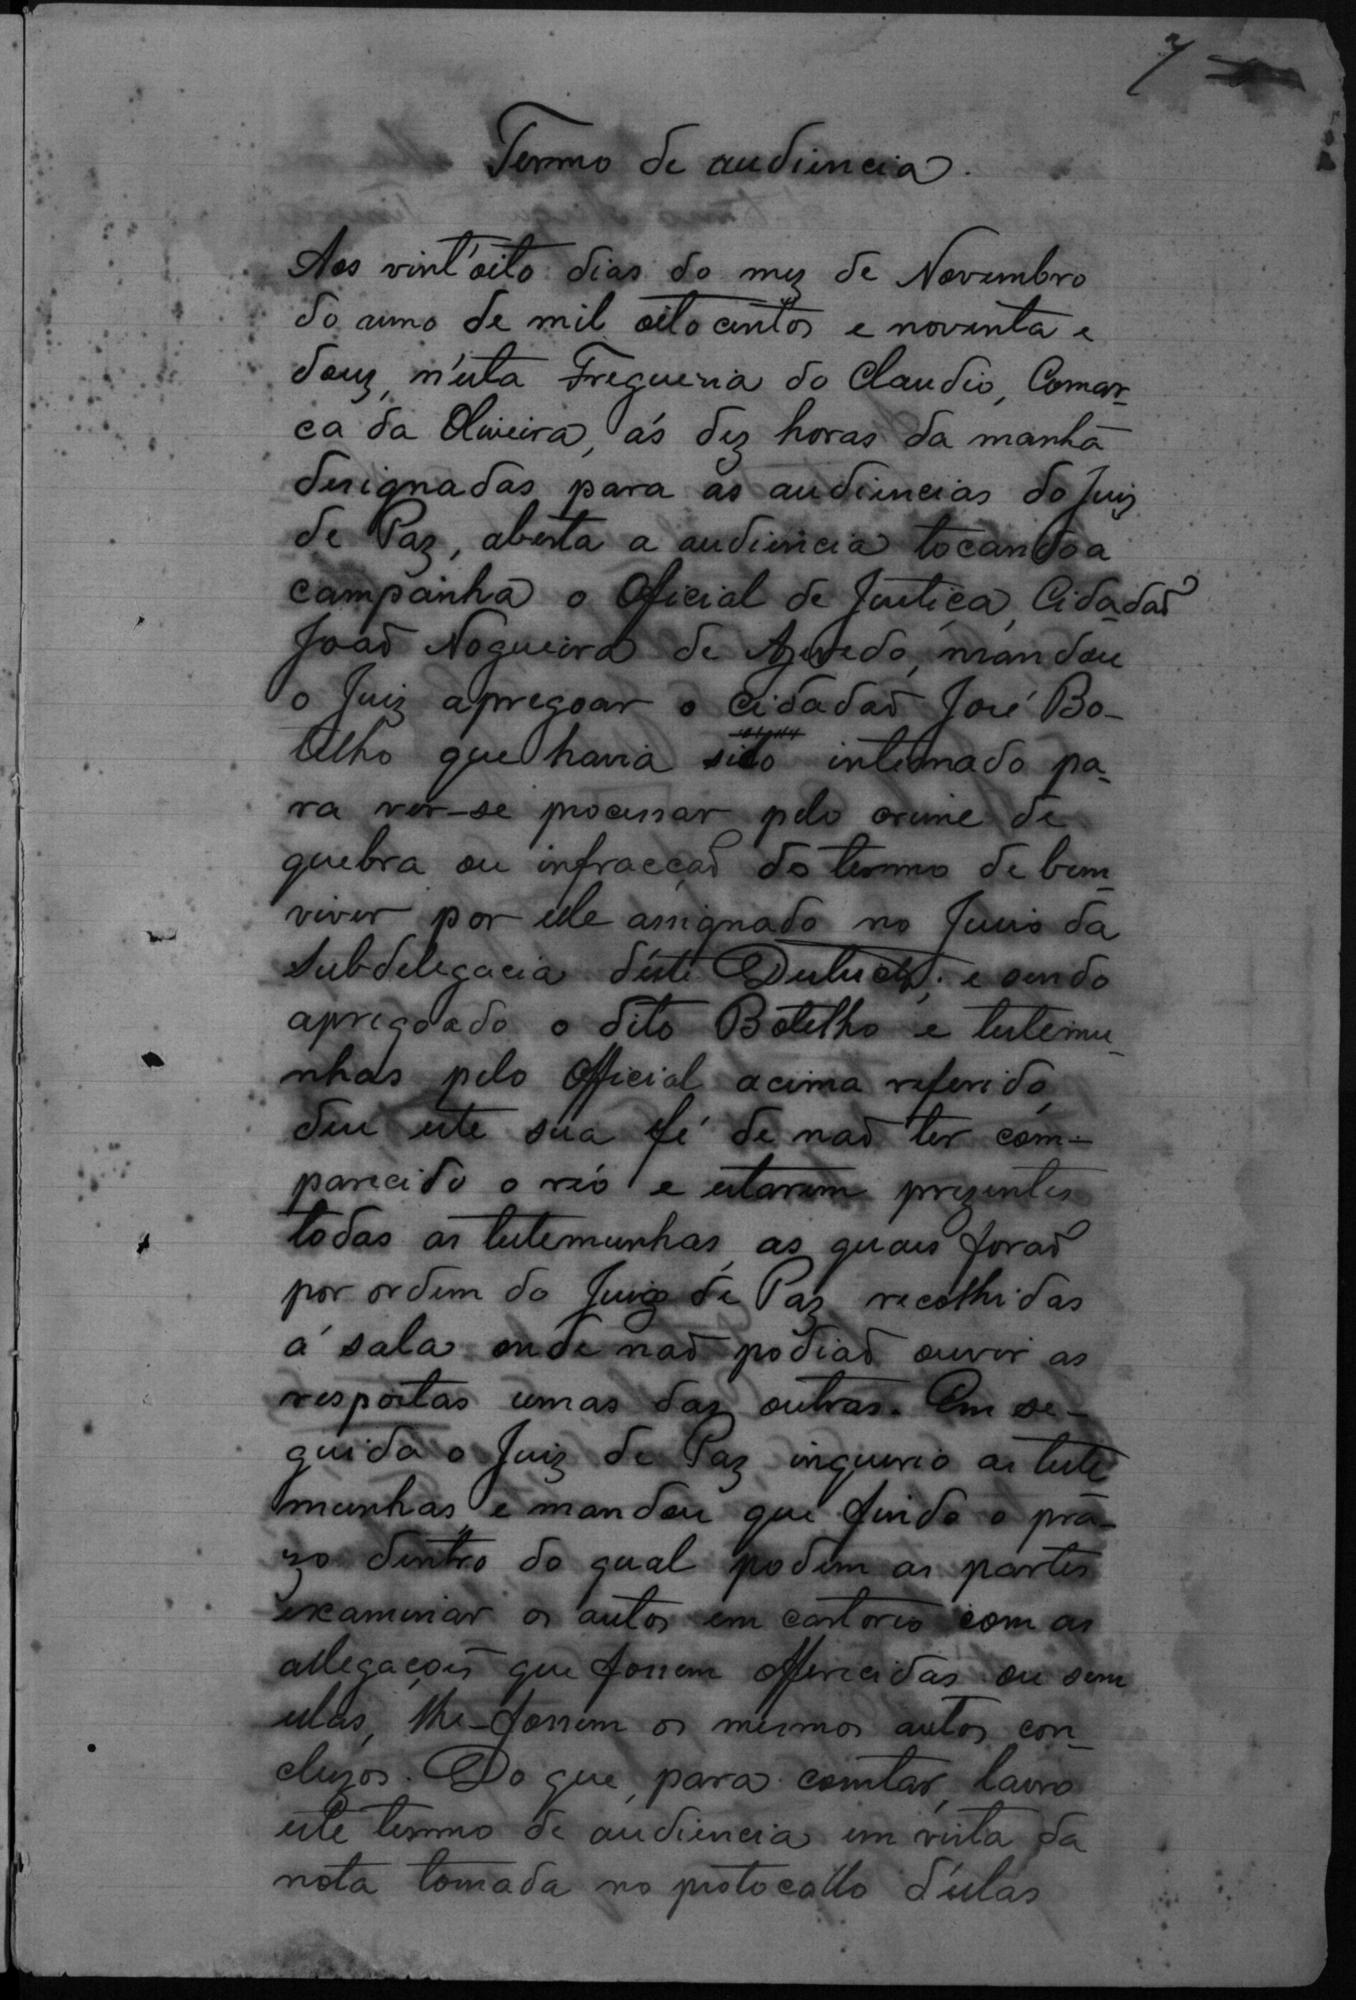 7
Termo de audiencia.
Aos vint'oito dias do mez de Novembro
do anno de mil oito centos e noventa e
douz, n'esta Freguezia do Claudio, Comar-
ca da Oliveira, ás dez horas da manhã
designadas para as audiencias do Juiz
de Paz, aberta a audiencia tocando a
campainha o Oficial de Justiça, Cidadaõ
Joaõ Nogueira de Azevedo, mandou
o Juiz apregoar o cidadaõ José Bo-
telho que havia sido intemado pa-
ra ver-se processar pelo crime de
quebra ou infracçaõ do termo de bem
viver por elle assignado no Juizo da
Subdelegacia d'este Districto; e sendo
apregoado o dito Botelho e testemu-
nhas pelo Official acima referido,
deu este sua fé de naõ ter com-
parecido o réo e estarem prezentes
todas as testemunhas, as quais foraõ
por ordem do Juiz de Paz recolhidas
á sala onde naõ podiaõ ouvir as
respostas umas das outras. Em se-
guida o Juiz de Paz inquerio as teste
munhas, e mandou que findo o pra-
zo dentro do qual podem as partes
examinar os autos em cartorio com as
allegaçoẽs que fossem offerecidas ou sem
ellas, lhe-fossem os mesmos autos con-
cluzos. Do que, para constar, lavro
este termo de audiencia em vista da
nota tomada no protocollo d'ellas